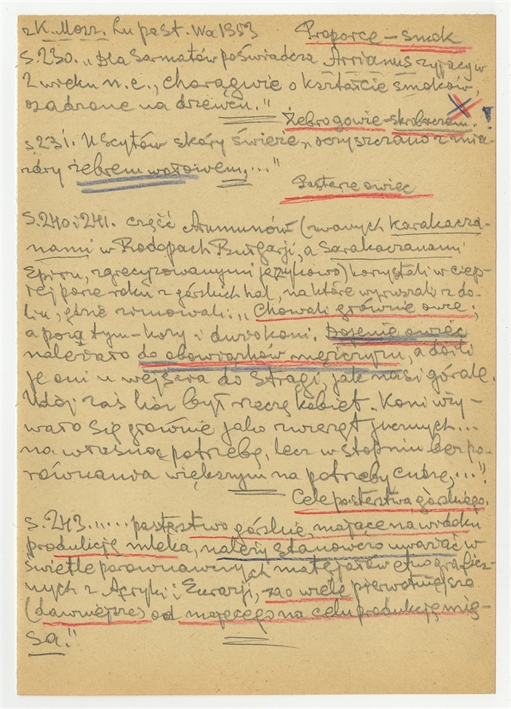 z K. Mosz. Lu past. Wa 1953 Proporce – smok
S. 230. „Dla Sarmatów poświadcza Arrianus żyjący w
2 wieku n.e., chorągwie o kształcie smoków,
osadzone na drzewcu."
Żebro gowie – skrobaczem!
s. 231. U Scytów skóry świeże „oczyszczano z mia-
zdry żebrem wołowem, ..."
Pasterze owiec
S. 240 i 241. część Arumunów (zwanych Karakacza-
nami w Rodopach Bułgarji, a Sarakaczanami
Epiru, zgrecyzowanymi językowo) korzystali w ciep-
łej porze roku z górskich hal, na które wyruszali z do-
lin, gdzie zimowali: „Chowali głównie owce,
a poza tym – kozy i dużo koni. Dojenie owiec
należało do obowiązków mężczyzn, a doili
je oni u wejścia do strągi, jak nasi górale.
Udój zaś kóz był rzeczą kobiet. Koni uży-
wało się głównie jako zwierząt jucznych...
na własną potrzebę, lecz w stopniu bez po-
równania większym na potrzeby cudze, ..."
Cele pasterstwa górskiego.
s. 243. .... pasterstwo górskie, mające na widoku
produkcję mleka, należy stanowczo uważać w
świetle porównawczych materjałów etnograficz-
nych z Afryki i Eurazji, za o wiele pierwotniejsze
(dawniejsze) od mającego na celu produkcję mię-
sa."